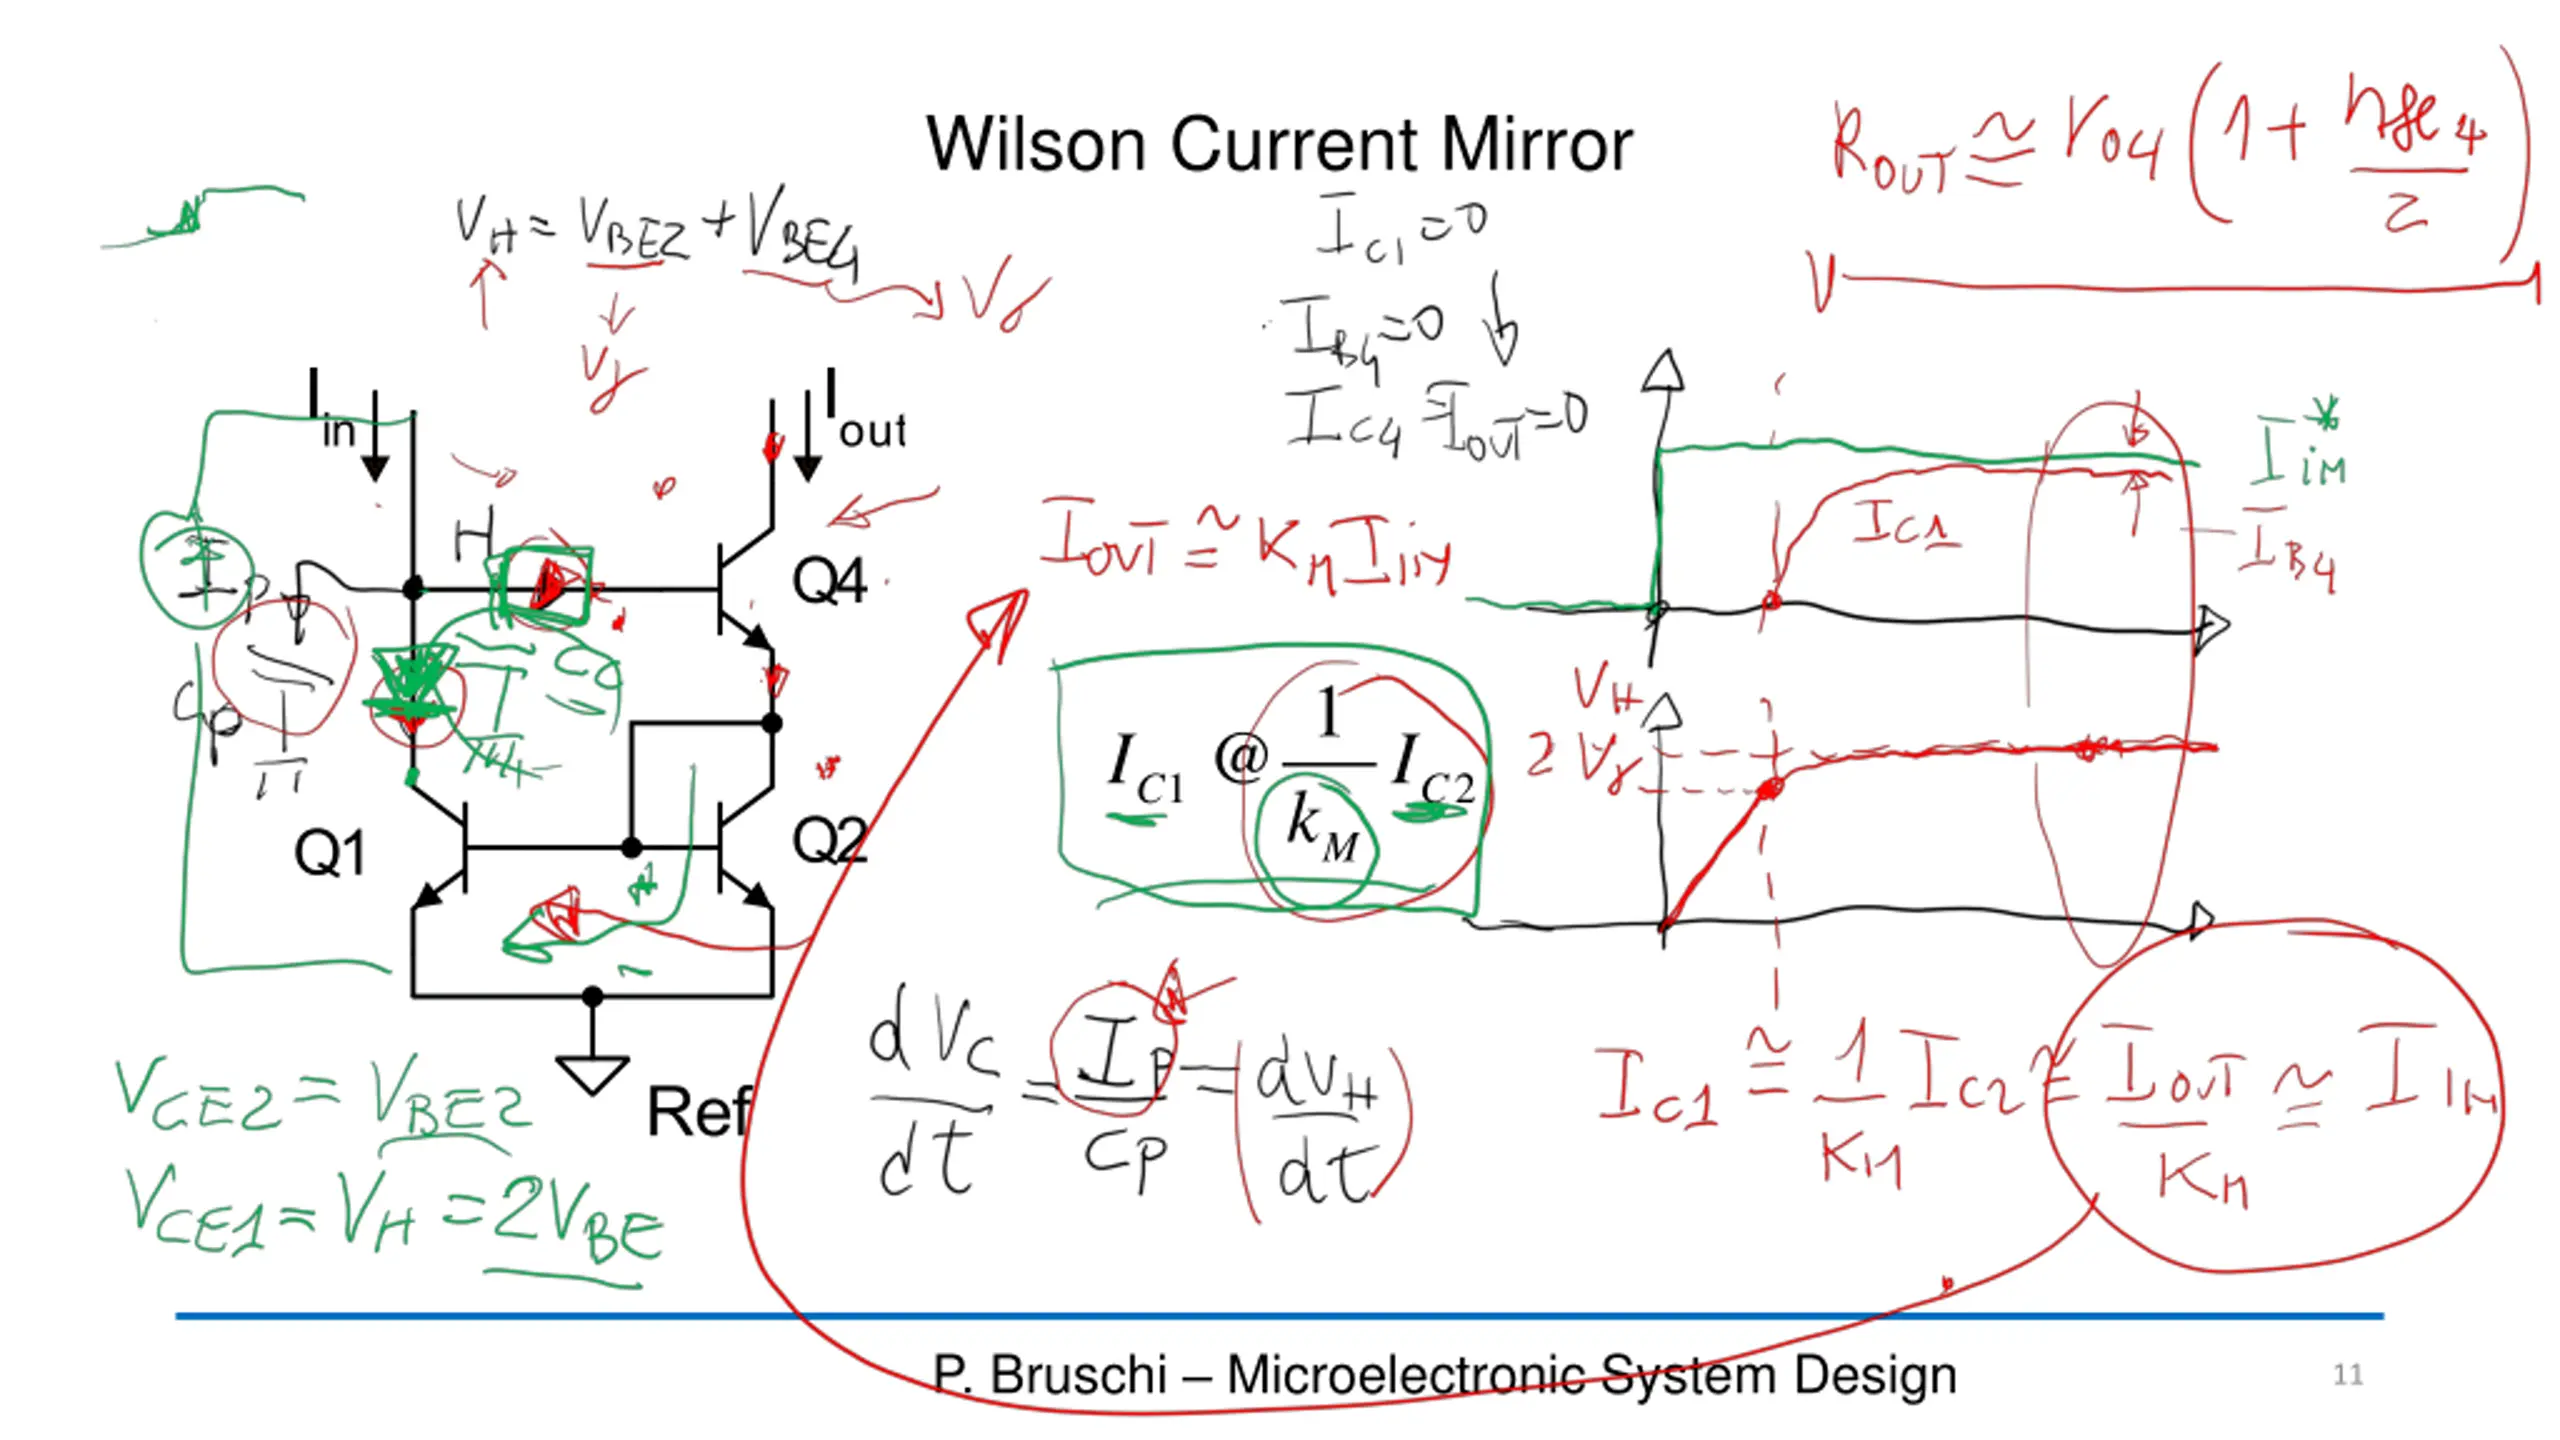 Wilson Current Mirror
R_OUT ≅ r_o4 (1 + hfe4/2)
V_H = V_BE2 + V_BE4
Vγ
Vγ
I_C1 = 0
I_B4 = 0
I_C4 = I_OUT = 0
I_in
I_out
H
Q4
I_OUT ≅ K_M I_in
I_C1
I_in*
I_B4
I_P
C_P
Q1
Q2
I_C1 @ 1/k_M I_C2
V_H
2Vγ
Ref
V_CE2 = V_BE2
V_CE1 = V_H = 2V_BE
dV_C/dt = I_P/C_P = (dV_H/dt)
I_C1 ≅ 1/K_M I_C2 ≅ I_OUT/K_M ≅ I_IN
P. Bruschi – Microelectronic System Design
11